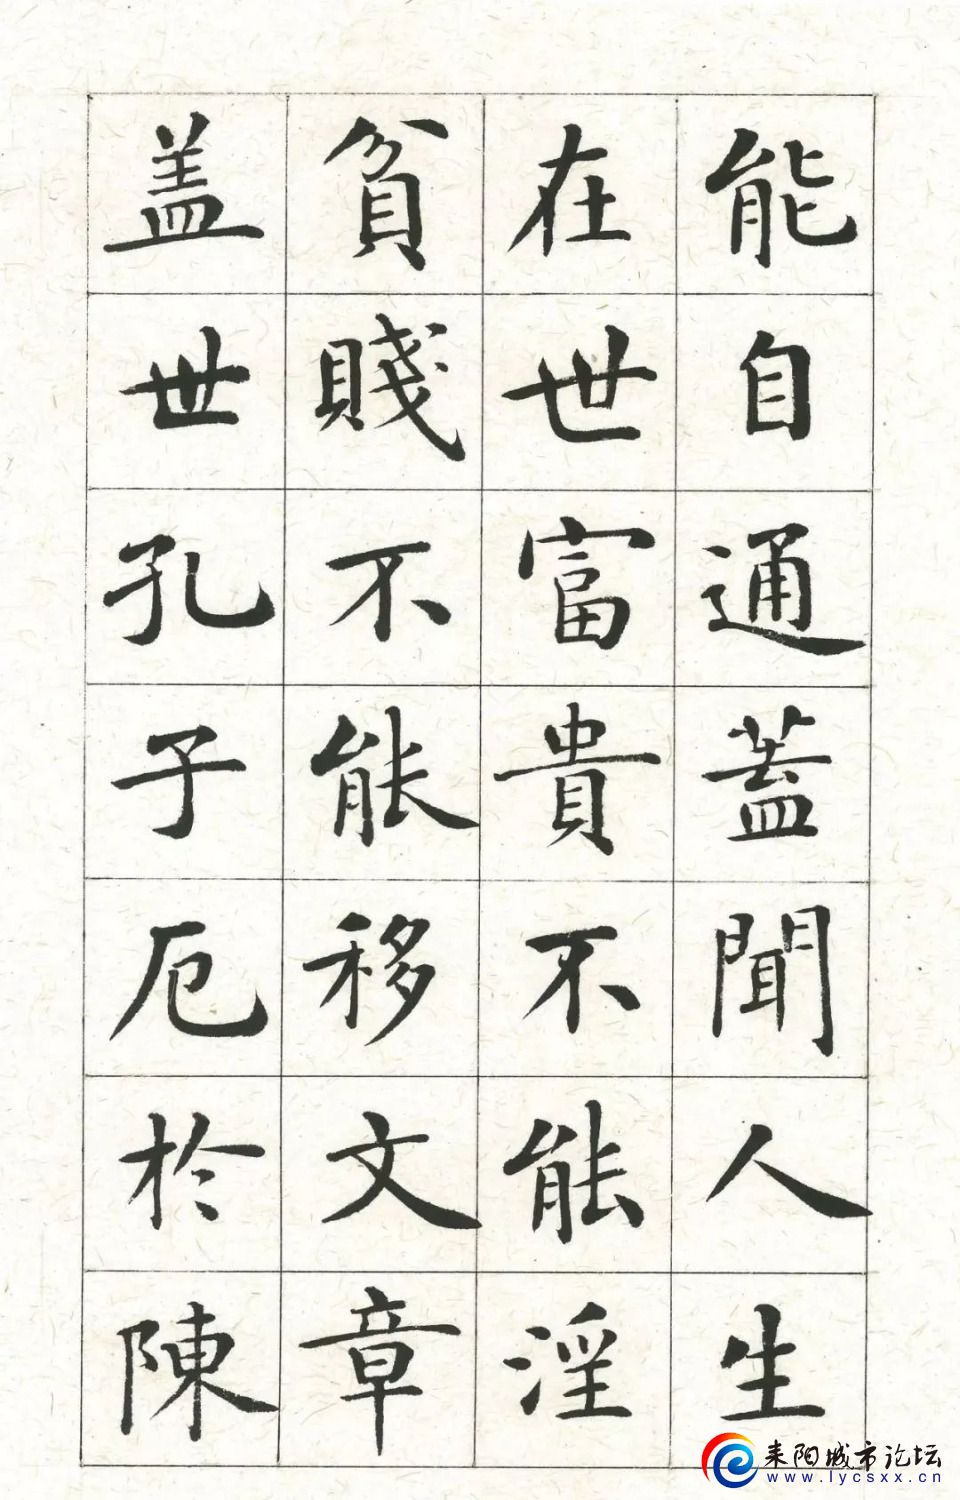 能自通蓋聞人生
在世富貴不能淫
貧賤不能移文章
盖世孔子厄於陳
耒阳城市论坛
www.lycsxx.cn